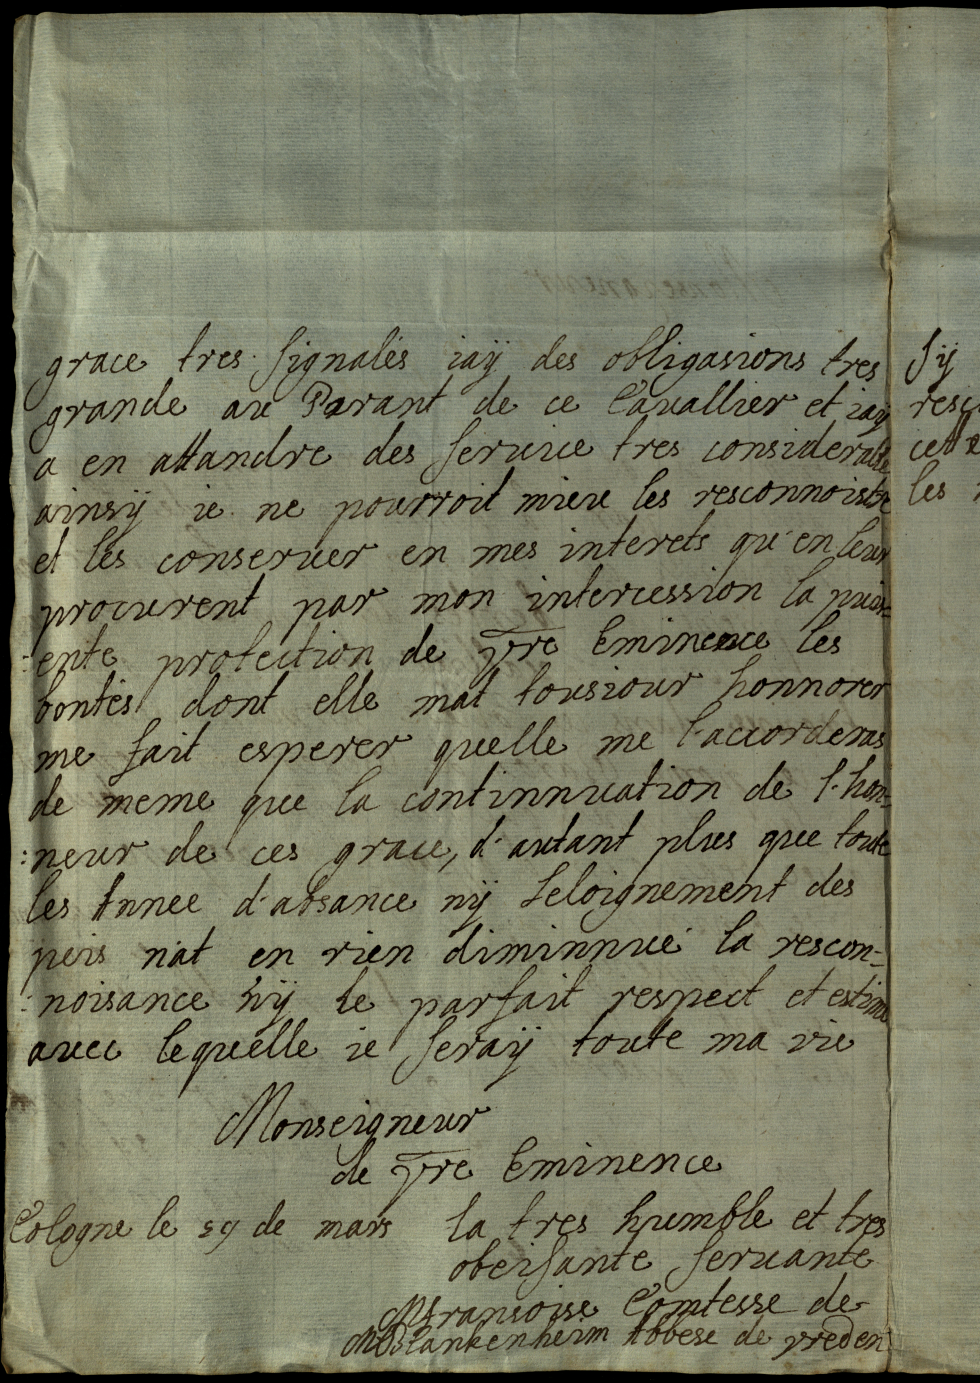 grace tres signalés iaÿ des obligasions tres
grande au Parant de ce Cavallier et iaÿ
a en attandre des service tres considerable
ainsÿ ie ne pourroit mieu les resconnoistre
et les conserver en mes interets qu'en leur
procurent par mon intercession la puis-
:ente protection de vre Eminence les
bontés dont elle mat tousiour honnorer
me fait esperer quelle me l'accorderas
de meme que la continnuation de l'hon-
:neur de ces grace, d'autant plus que toute
les Annee d'absance nÿ Leloignement des
peis n'at en rien diminnué la rescon-
:noisance nÿ le parfait respect et estime
avec lequelle ie seraÿ toute ma vie
Monseigneur
de vre Eminence
Cologne le 29 de mars la tres humble et tres
obeisante servante
Fransoise Comtesse de
Blankenheim Abbese de vreden
sÿ
les